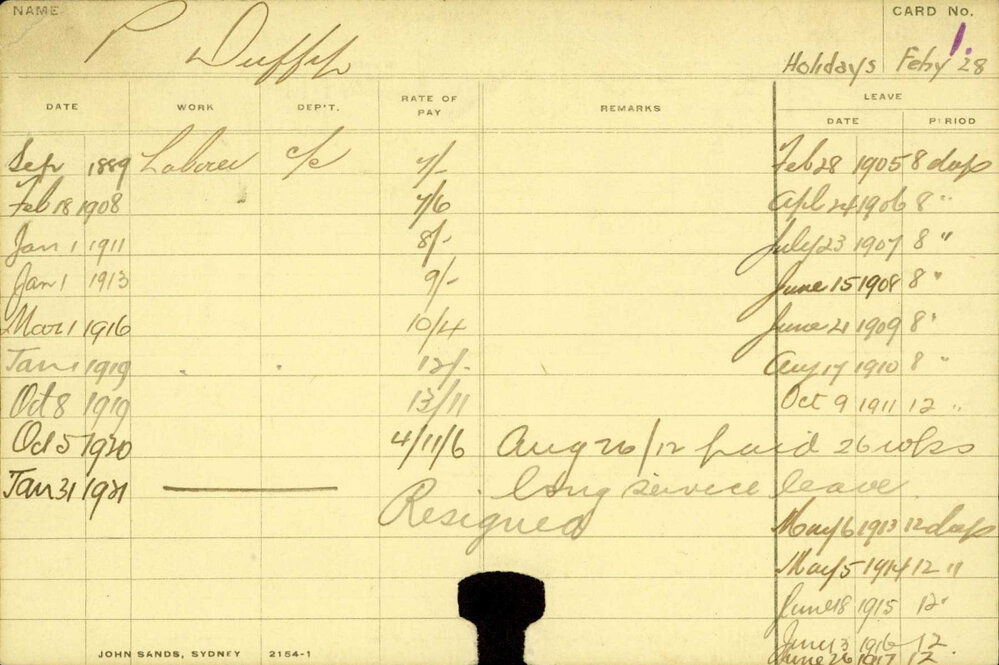 NAME P Duffy CARD No. 1.
Holidays Feby 28
DATE WORK DEP'T. RATE OF PAY REMARKS LEAVE
DATE PERIOD
Sep 1889 Laborer c/c 7/- Feb 28 1905 8 days
Feb 18 1908 " 7/6 Apl 24 1906 8 "
Jan 1 1911 8/- July 23 1907 8 "
Jan 1 1913 9/- June 15 1908 8 "
Mar 1 1916 10/4 June 21 1909 8 "
Jan 1 1919 " " 12/- Aug 17 1910 8 "
Oct 8 1919 13/11 Oct 9 1911 12 "
Oct 5 1920 4/11/6 Aug 26/12 paid 26 wks
Jan 31 1921 long service leave.
Resigned May 6 1913 12 days
May 5 1914 12 "
June 18 1915 12 "
June 3 1916 12.
June 26 1917 12
JOHN SANDS, SYDNEY 2154-1